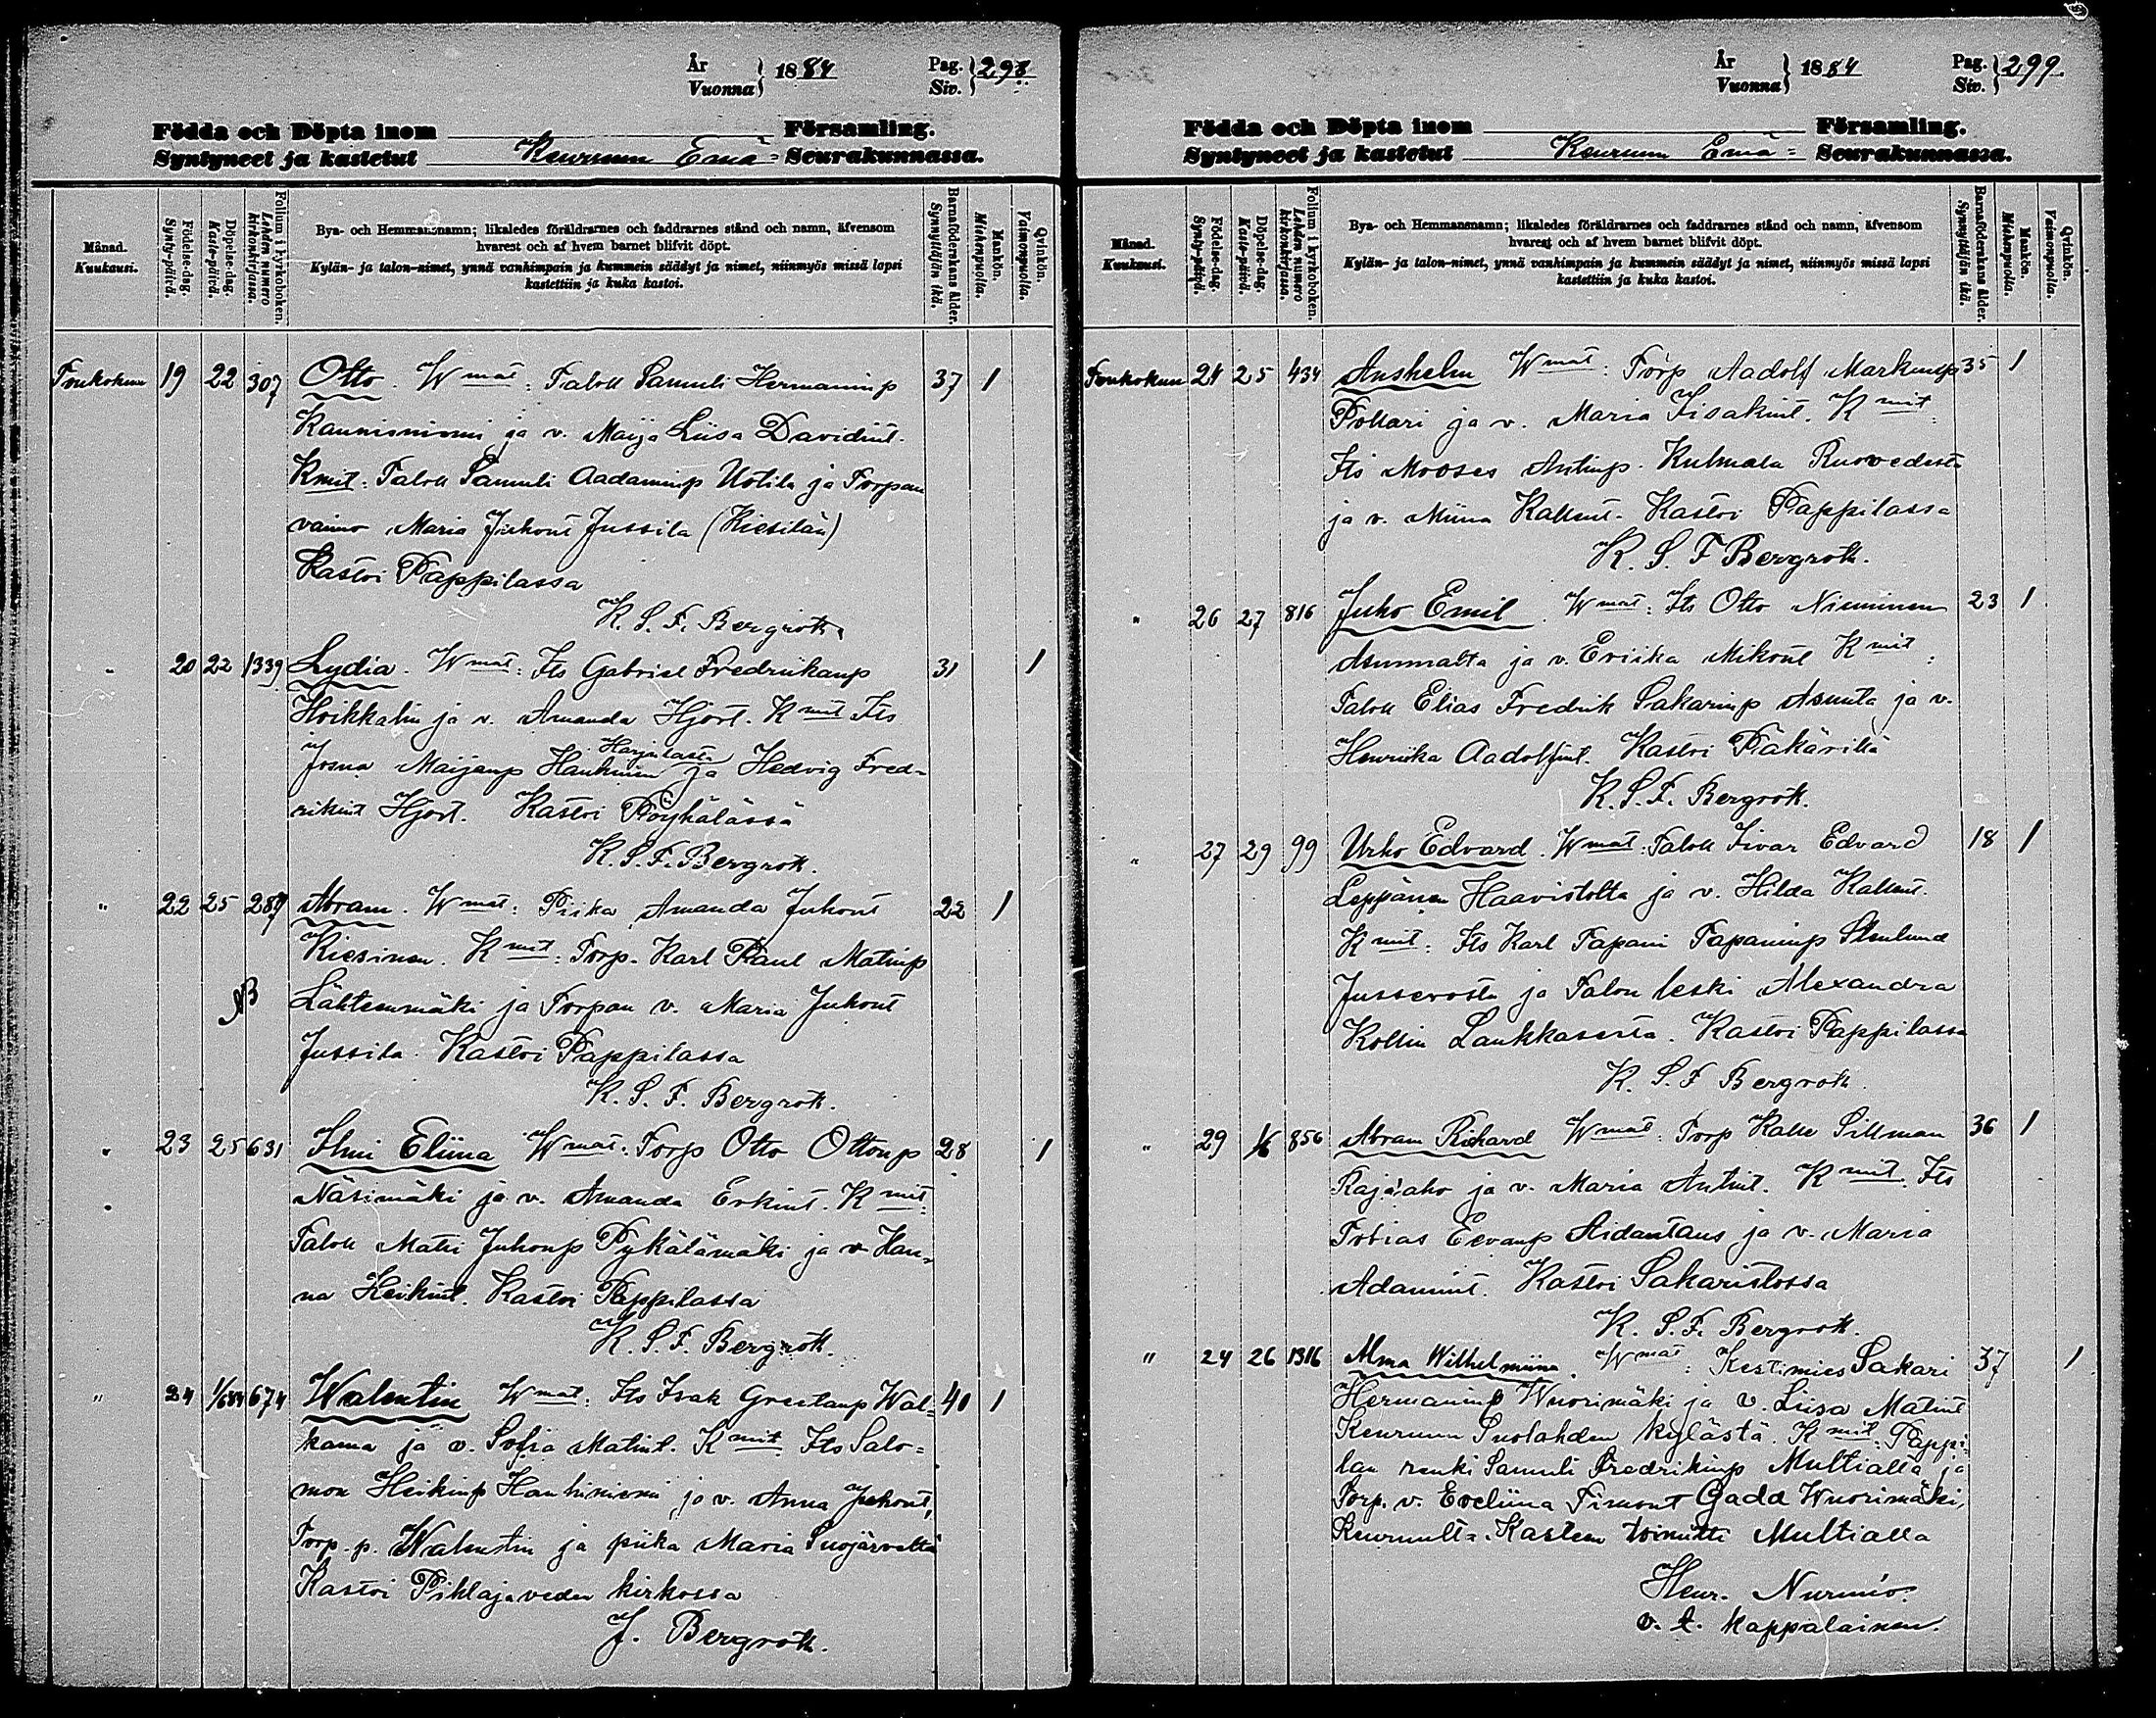 År
Vuonna } 1884
Pag.
Siv. } 298
Födda och Döpta inom Församling.
Syntyneet ja kastetut Keuruun Emä= Seurakunnassa.
Månad.
Kuukausi.
Födelse-dag.
Synty-päivä.
Döpelse-dag.
Kaste-päivä.
Folium i kyrkoboken.
Lehden numero kirkonkirjassa.
Bya- och Hemmansnamn; likaledes föräldrarnes och faddrarnes stånd och namn, äfvensom
hvarest och af hvem barnet blifvit döpt.
Kylän- ja talon-nimet, ynnä vanhimpain ja kummein säädyt ja nimet, niinmyös missä lapsi
kastettiin ja kuka kastoi.
Barnaföderskans ålder.
Synnyttäjän ikä.
Mankön.
Miehenpuolia.
Qvinkön.
Vaimonpuolia.
Toukokuu 19 22 307 Otto. Wmat: Talou Samuli Hermaninp 37 1
Kaunisniemi ja v. Maija Liisa Davidint.
Kmit: Talou Samuli Aadaminp Uotila ja Torpan
vaimo Maria Juhont Jussila (Kiesilän)
Kastoi Pappilassa
K. S. F. Bergroth.
" 20 22 1339 Lydia. Wmat: Its Gabriel Fredrikanp 31 1
Hoikkalin ja v. Amanda Hjort. Kmit Its
Harjulasta
Josua Maijanp Hankinen ja Hedvig Fred=
rikint Hjort. Kastoi Pöyhälässä
K. S. F. Bergroth.
" 22 25 287 Abram. Wmat: Piika Amanda Juhont 22 1
Kiesinen. Kmit: Torp. Karl Paul Matinp
NB Lähteenmäki ja Torpan v. Maria Juhont
Jussila. Kastoi Pappilassa
K. S. F. Bergroth.
" 23 25 631 Ilmi Eliina Wmat: Torp Otto Ottonp 28 1
Näsimäki ja v. Amanda Erkint. Kmit:
Talou Matti Juhonp Pykälämäki ja v. Han=
na Heikint. Kastoi Pappilassa
K. S. F. Bergroth.
" 24 1/6 84 674 Walentin Wmat: Its Isak Greetanp Wal= 40 1
kama ja v. Sofia Matint. Kmit Its Salo=
mon Heikinp Hanhiniemi ja v. Anna Juhont,
Torp. p. Walentin ja piika Maria Suojärveltä
Kastoi Pihlajaveden kirkossa
J. Bergroth.
År
Vuonna } 1884
Pag.
Siv. } 299.
Födda och Döpta inom Församling.
Syntyneet ja kastetut Keuruun Emä= Seurakunnassa.
Månad.
Kuukausi.
Födelse-dag.
Synty-päivä.
Döpelse-dag.
Kaste-päivä.
Folium i kyrkoboken.
Lehden numero kirkonkirjassa.
Bya- och Hemmansnamn; likaledes föräldrarnes och faddrarnes stånd och namn, äfvensom
hvarest och af hvem barnet blifvit döpt.
Kylän- ja talon-nimet, ynnä vanhimpain ja kummein säädyt ja nimet, niinmyös missä lapsi
kastettiin ja kuka kastoi.
Barnaföderskans ålder.
Synnyttäjän ikä.
Mankön.
Miehenpuolia.
Qvinkön.
Vaimonpuolia.
Toukokuu 21 25 434 Anshelm Wmat: Torp Aadolf Markusp 35 1
Pollari ja v. Maria Iisakint. Kmit:
Its Mooses Antinp. Kulmala Ruovedestä
ja v. Miina Kallent. Kastoi Pappilassa
K. S. F Bergroth.
" 26 27 816 Juho Emil. Wmat: Its Otto Nieminen 23 1
Asunnalta ja v. Eriika Mikont Kmit:
Talou Elias Fredrik Sakarinp Asunta ja v.
Henriika Aadolfint. Kastoi Päkärillä
K. S. F. Bergroth.
" 27 29 99 Urho Edvard. Wmat: Talou Iivar Edvard 18 1
Leppänen Haavistolta ja v. Hilda Kallent.
Kmit: Its Karl Tapani Tapaninp Stenlund
Jusserosta ja Talon leski Alexandra
Kollin Laukkasesta. Kastoi Pappilassa
K. S. F Bergroth.
" 29 1/6 856 Abram Rikhard Wmat: Torp Kalle Sillman 36 1
Rajaaho ja v. Maria Antint. Kmit. Its
Tobias Eevanp Aidantaus ja v. Maria
Adamint. Kastoi Sakaristossa
K. S. F. Bergroth.
" 24 26 1316 Alma Wilhelmiina. Wmat: Kestimies Sakari 37 1
Hermaninp Wuorimäki ja v. Liisa Matint
Keuruun Suolahden kylästä. Kmit: Pappi=
lan renki Samuli Fredrikinp Multialla ja
Torp. v. Eveliina Simont Gadd Wuorimäki,
Keuruulta. Kasteen toimitti Multialla
Henr. Nurmio.
v. t. Kappalainen.